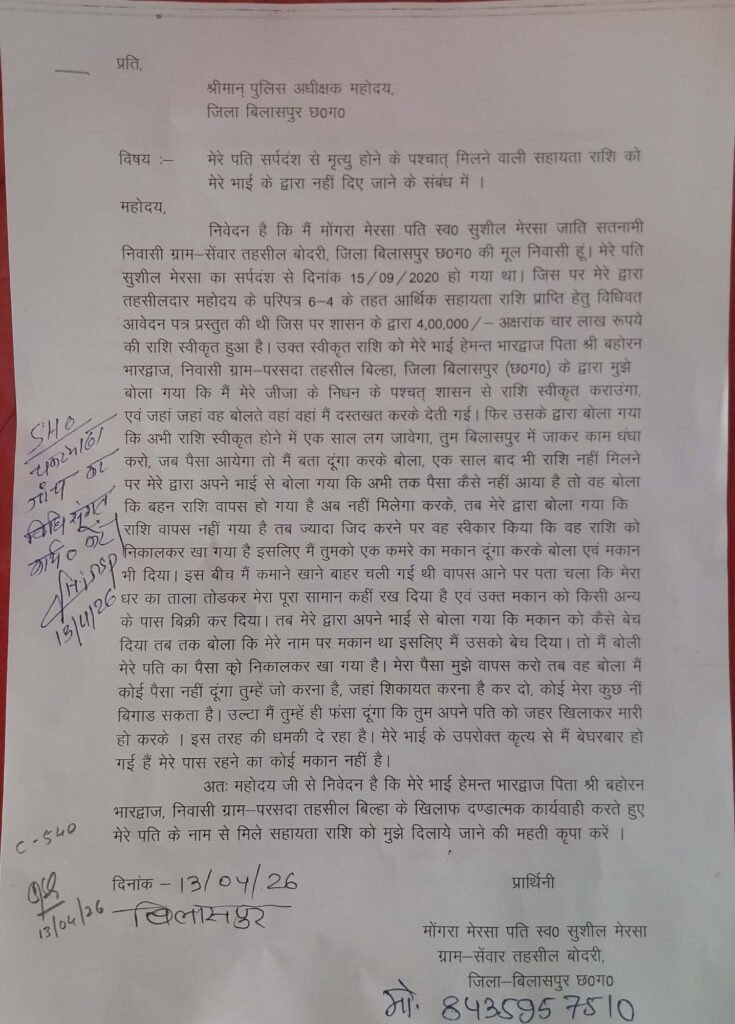 प्रति,
श्रीमान् पुलिस अधीक्षक महोदय,
जिला बिलासपुर छ0ग0
विषय :– मेरे पति सर्पदंश से मृत्यु होने के पश्चात् मिलने वाली सहायता राशि को
मेरे भाई के द्वारा नहीं दिए जाने के संबंध में ।
महोदय,
निवेदन है कि मैं मोंगरा मेरसा पति स्व0 सुशील मेरसा जाति सतनामी
निवासी ग्राम–सेंवार तहसील बोदरी, जिला बिलासपुर छ0ग0 की मूल निवासी हूं। मेरे पति
सुशील मेरसा का सर्पदंश से दिनांक 15/09/2020 हो गया था। जिस पर मेरे द्वारा
तहसीलदार महोदय के परिपत्र 6–4 के तहत आर्थिक सहायता राशि प्राप्ति हेतु विधिवत
आवेदन पत्र प्रस्तुत की थी जिस पर शासन के द्वारा 4,00,000/– अक्षरांक चार लाख रूपये
की राशि स्वीकृत हुआ है। उक्त स्वीकृत राशि को मेरे भाई हेमन्त भारद्वाज पिता श्री बहोरन
भारद्वाज, निवासी ग्राम–परसदा तहसील बिल्हा, जिला बिलासपुर (छ0ग0) के द्वारा मुझे
बोला गया कि मैं मेरे जीजा के निधन के पश्चत् शासन से राशि स्वीकृत कराउंगा,
एवं जहां जहां वह बोलते वहां वहां मैं दस्तखत करके देती गई। फिर उसके द्वारा बोला गया
कि अभी राशि स्वीकृत होने में एक साल लग जावेगा, तुम बिलासपुर में जाकर काम धंधा
करो, जब पैसा आयेगा तो मैं बता दूंगा करके बोला, एक साल बाद भी राशि नहीं मिलने
पर मेरे द्वारा अपने भाई से बोला गया कि अभी तक पैसा कैसे नहीं आया है तो वह बोला
कि बहन राशि वापस हो गया है अब नहीं मिलेगा करके, तब मेरे द्वारा बोला गया कि
राशि वापस नहीं गया है तब ज्यादा जिद करने पर वह स्वीकार किया कि वह राशि को
निकालकर खा गया है इसलिए मैं तुमको एक कमरे का मकान दूंगा करके बोला एवं मकान
भी दिया। इस बीच में कमाने खाने बाहर चली गई थी वापस आने पर पता चला कि मेरा
घर का ताला तोडकर मेरा पूरा सामान कहीं रख दिया है एवं उक्त मकान को किसी अन्य
के पास बिक्री कर दिया। तब मेरे द्वारा अपने भाई से बोला गया कि मकान को कैसे बेच
दिया तब तक बोला कि मेरे नाम पर मकान था इसलिए मैं उसको बेच दिया। तो मैं बोली
मेरे पति का पैसा को निकालकर खा गया है। मेरा पैसा मुझे वापस करो तब वह बोला मैं
कोई पैसा नहीं दूंगा तुम्हें जो करना है, जहां शिकायत करना है कर दो, कोई मेरा कुछ नीं
बिगाड सकता है। उल्टा मैं तुम्हें ही फंसा दूंगा कि तुम अपने पति को जहर खिलाकर मारी
हो करके । इस तरह की धमकी दे रहा है। मेरे भाई के उपरोक्त कृत्य से मैं बेघरबार हो
गई हैं मेरे पास रहने का कोई मकान नहीं है।
अतः महोदय जी से निवेदन है कि मेरे भाई हेमन्त भारद्वाज पिता श्री बहोरन
भारद्वाज, निवासी ग्राम–परसदा तहसील बिल्हा के खिलाफ दण्डात्मक कार्यवाही करते हुए
मेरे पति के नाम से मिले सहायता राशि को मुझे दिलाये जाने की महती कृपा करें ।
SHO
चकरभाठा
जांच कर
विधि संगत
कार्य0 करें
13/4/26
C-540
13/04/26
दिनांक - 13/04/26
बिलासपुर
प्रार्थिनी
मोंगरा मेरसा पति स्व0 सुशील मेरसा
ग्राम–सेंवार तहसील बोदरी,
जिला–बिलासपुर छ0ग0
मो. 8435957510